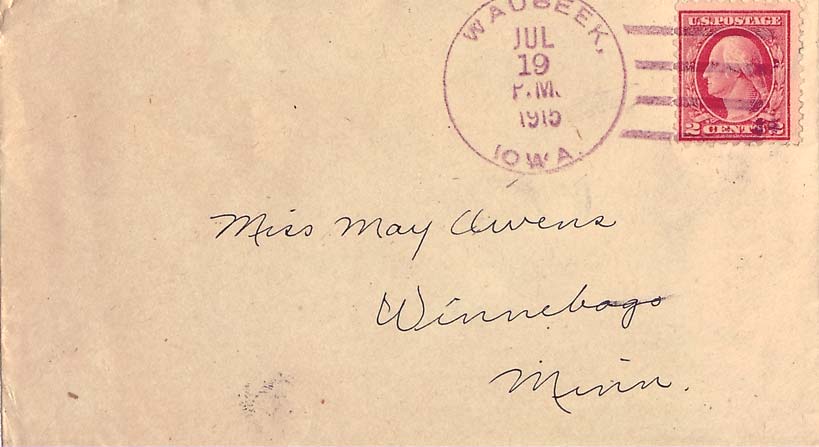 WAUBEEK,
JUL
19
P.M.
1915
IOWA.
U.S. POSTAGE
2 CENTS 2
Miss May Owens
Winnebago
Minn.